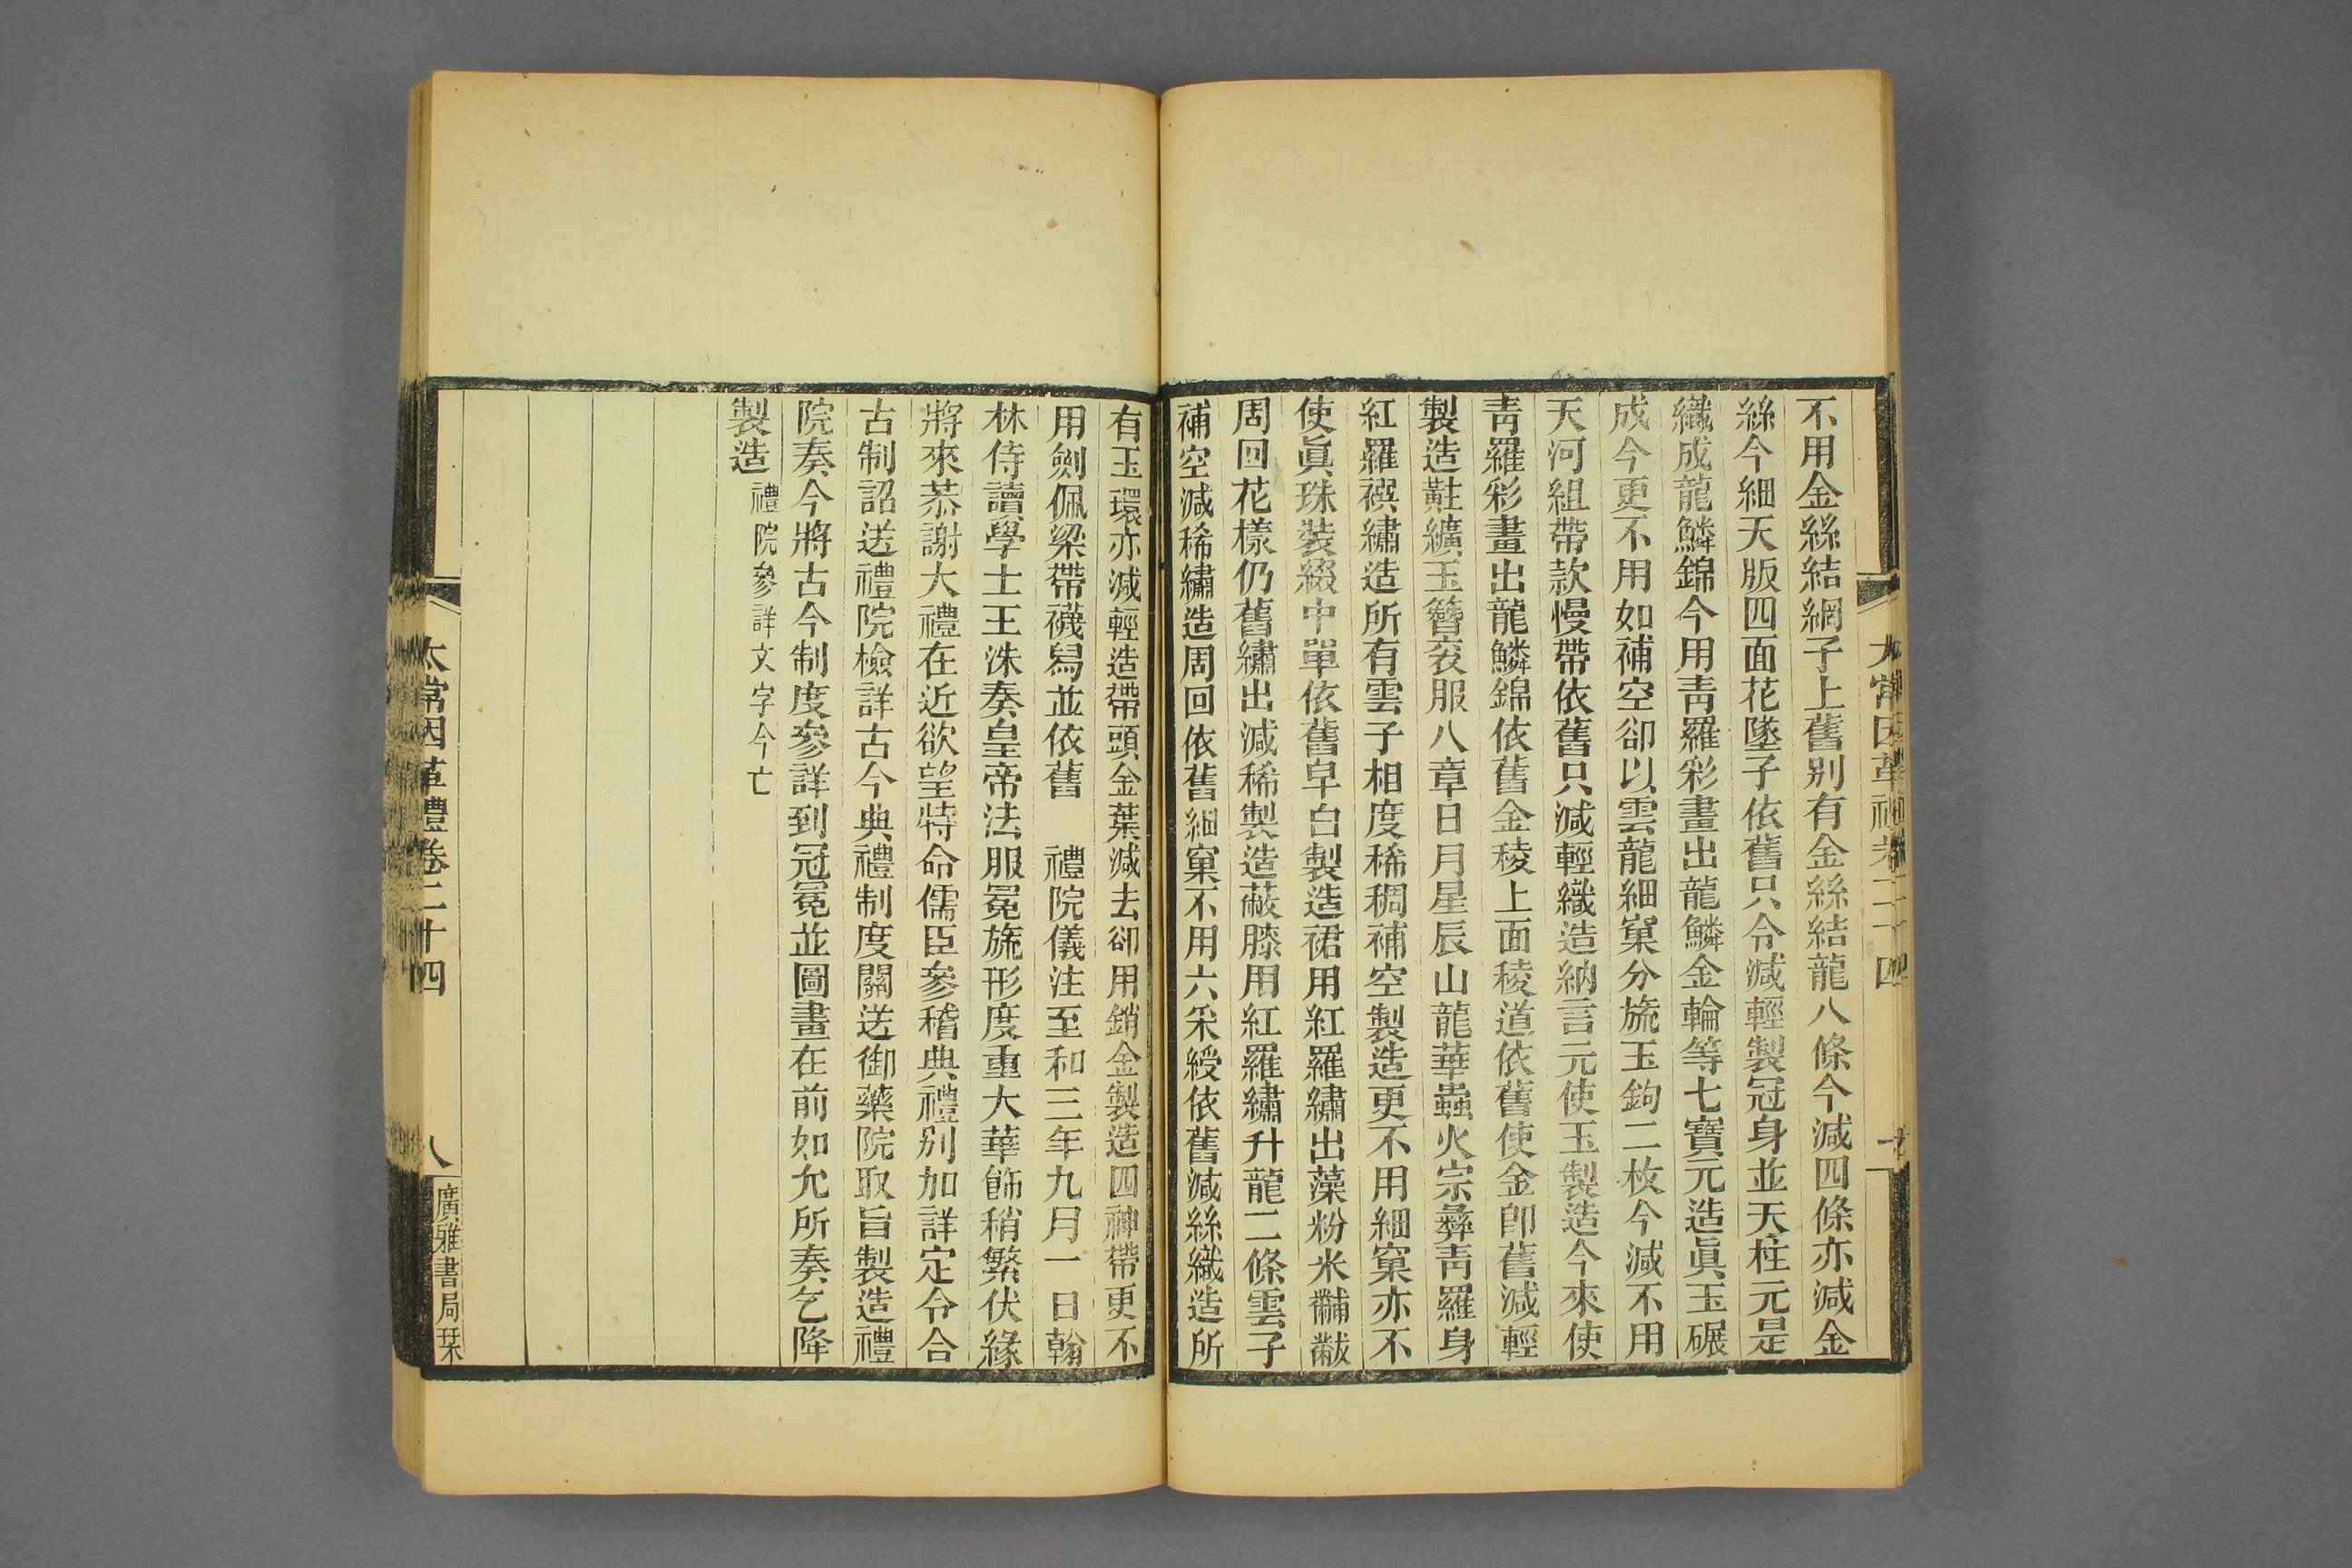 不用金絲結網子上舊別有金絲結龍八條今減四條亦減金
絲今細天版四面花墜子依舊只令減輕製冠身並天柱元是
織成龍鱗錦今用靑羅彩畫出龍鱗金輪等七寶元造眞玉碾
成今更不用如補空卻以雲龍細窠分旒玉鉤二枚今減不用
天河組帶款慢帶依舊只減輕織造納言元使玉製造今來使
靑羅彩畫出龍鱗錦依舊金稜上面稜道依舊使金卽舊減輕
製造黈纊玉簪袞服八章日月星辰山龍華蟲火宗彝靑羅身
紅羅襈繡造所有雲子相度稀稠補空製造更不用細窠亦不
使眞珠装綴中單依舊皁白製造裙用紅羅繡出藻粉米黼黻
周回花樣仍舊繡出減稀製造蔽膝用紅羅繡升龍二條雲子
補空減稀繡造周回依舊細窠不用六采綬依舊減絲織造所
有玉環亦減輕造帶頭金葉減去卻用銷金製造四神帶更不
用劍佩梁帶襪舄並依舊　禮院儀注至和三年九月一日翰
林侍讀學士王洙奏皇帝法服冕旒形度重大華飾稍繁伏緣
將來恭謝大禮在近欲望特命儒臣參稽典禮別加詳定令合
古制詔送禮院檢詳古今典禮制度關送御藥院取旨製造禮
院奏今將古今制度參詳到冠冕並圖畫在前如允所奏乞降
製造禮院參詳文字今亡
太常因革禮卷二十四
八
廣雅書局栞